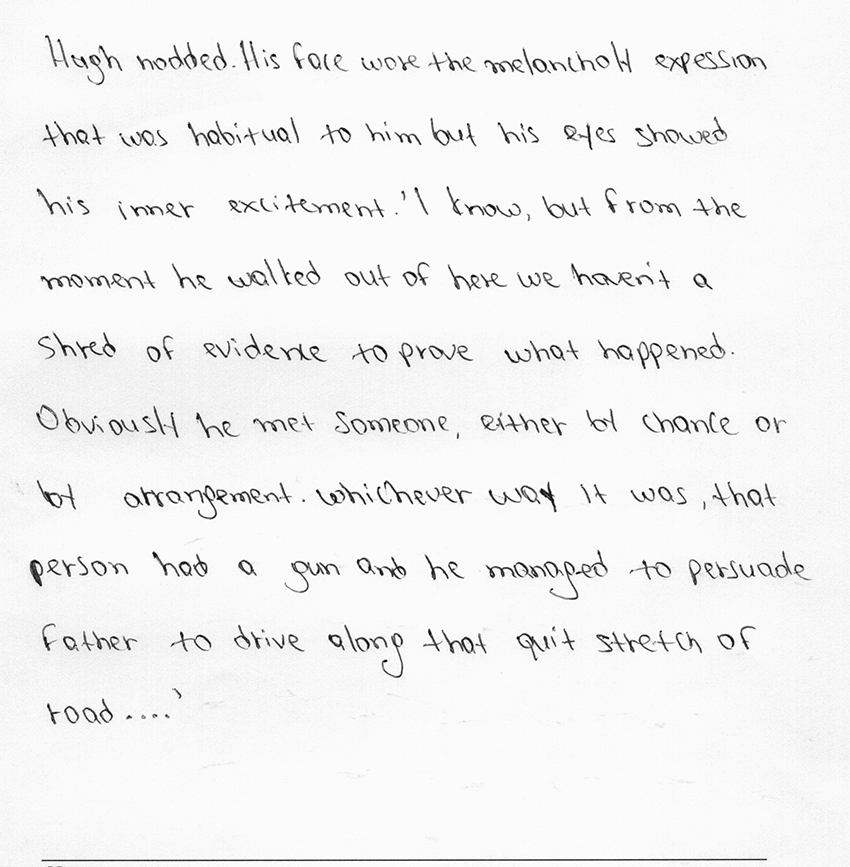 Hugh nodded. His face wore the melancholy expession
that was habitual to him but his eyes showed
his inner excitement. 'I know, but from the
moment he walked out of here we haven't a
shred of evidence to prove what happened.
Obviously he met someone, either by chance or
by arrangement. whichever way it was, that
person had a gun and he managed to persuade
father to drive along that quit stretch of
road....'